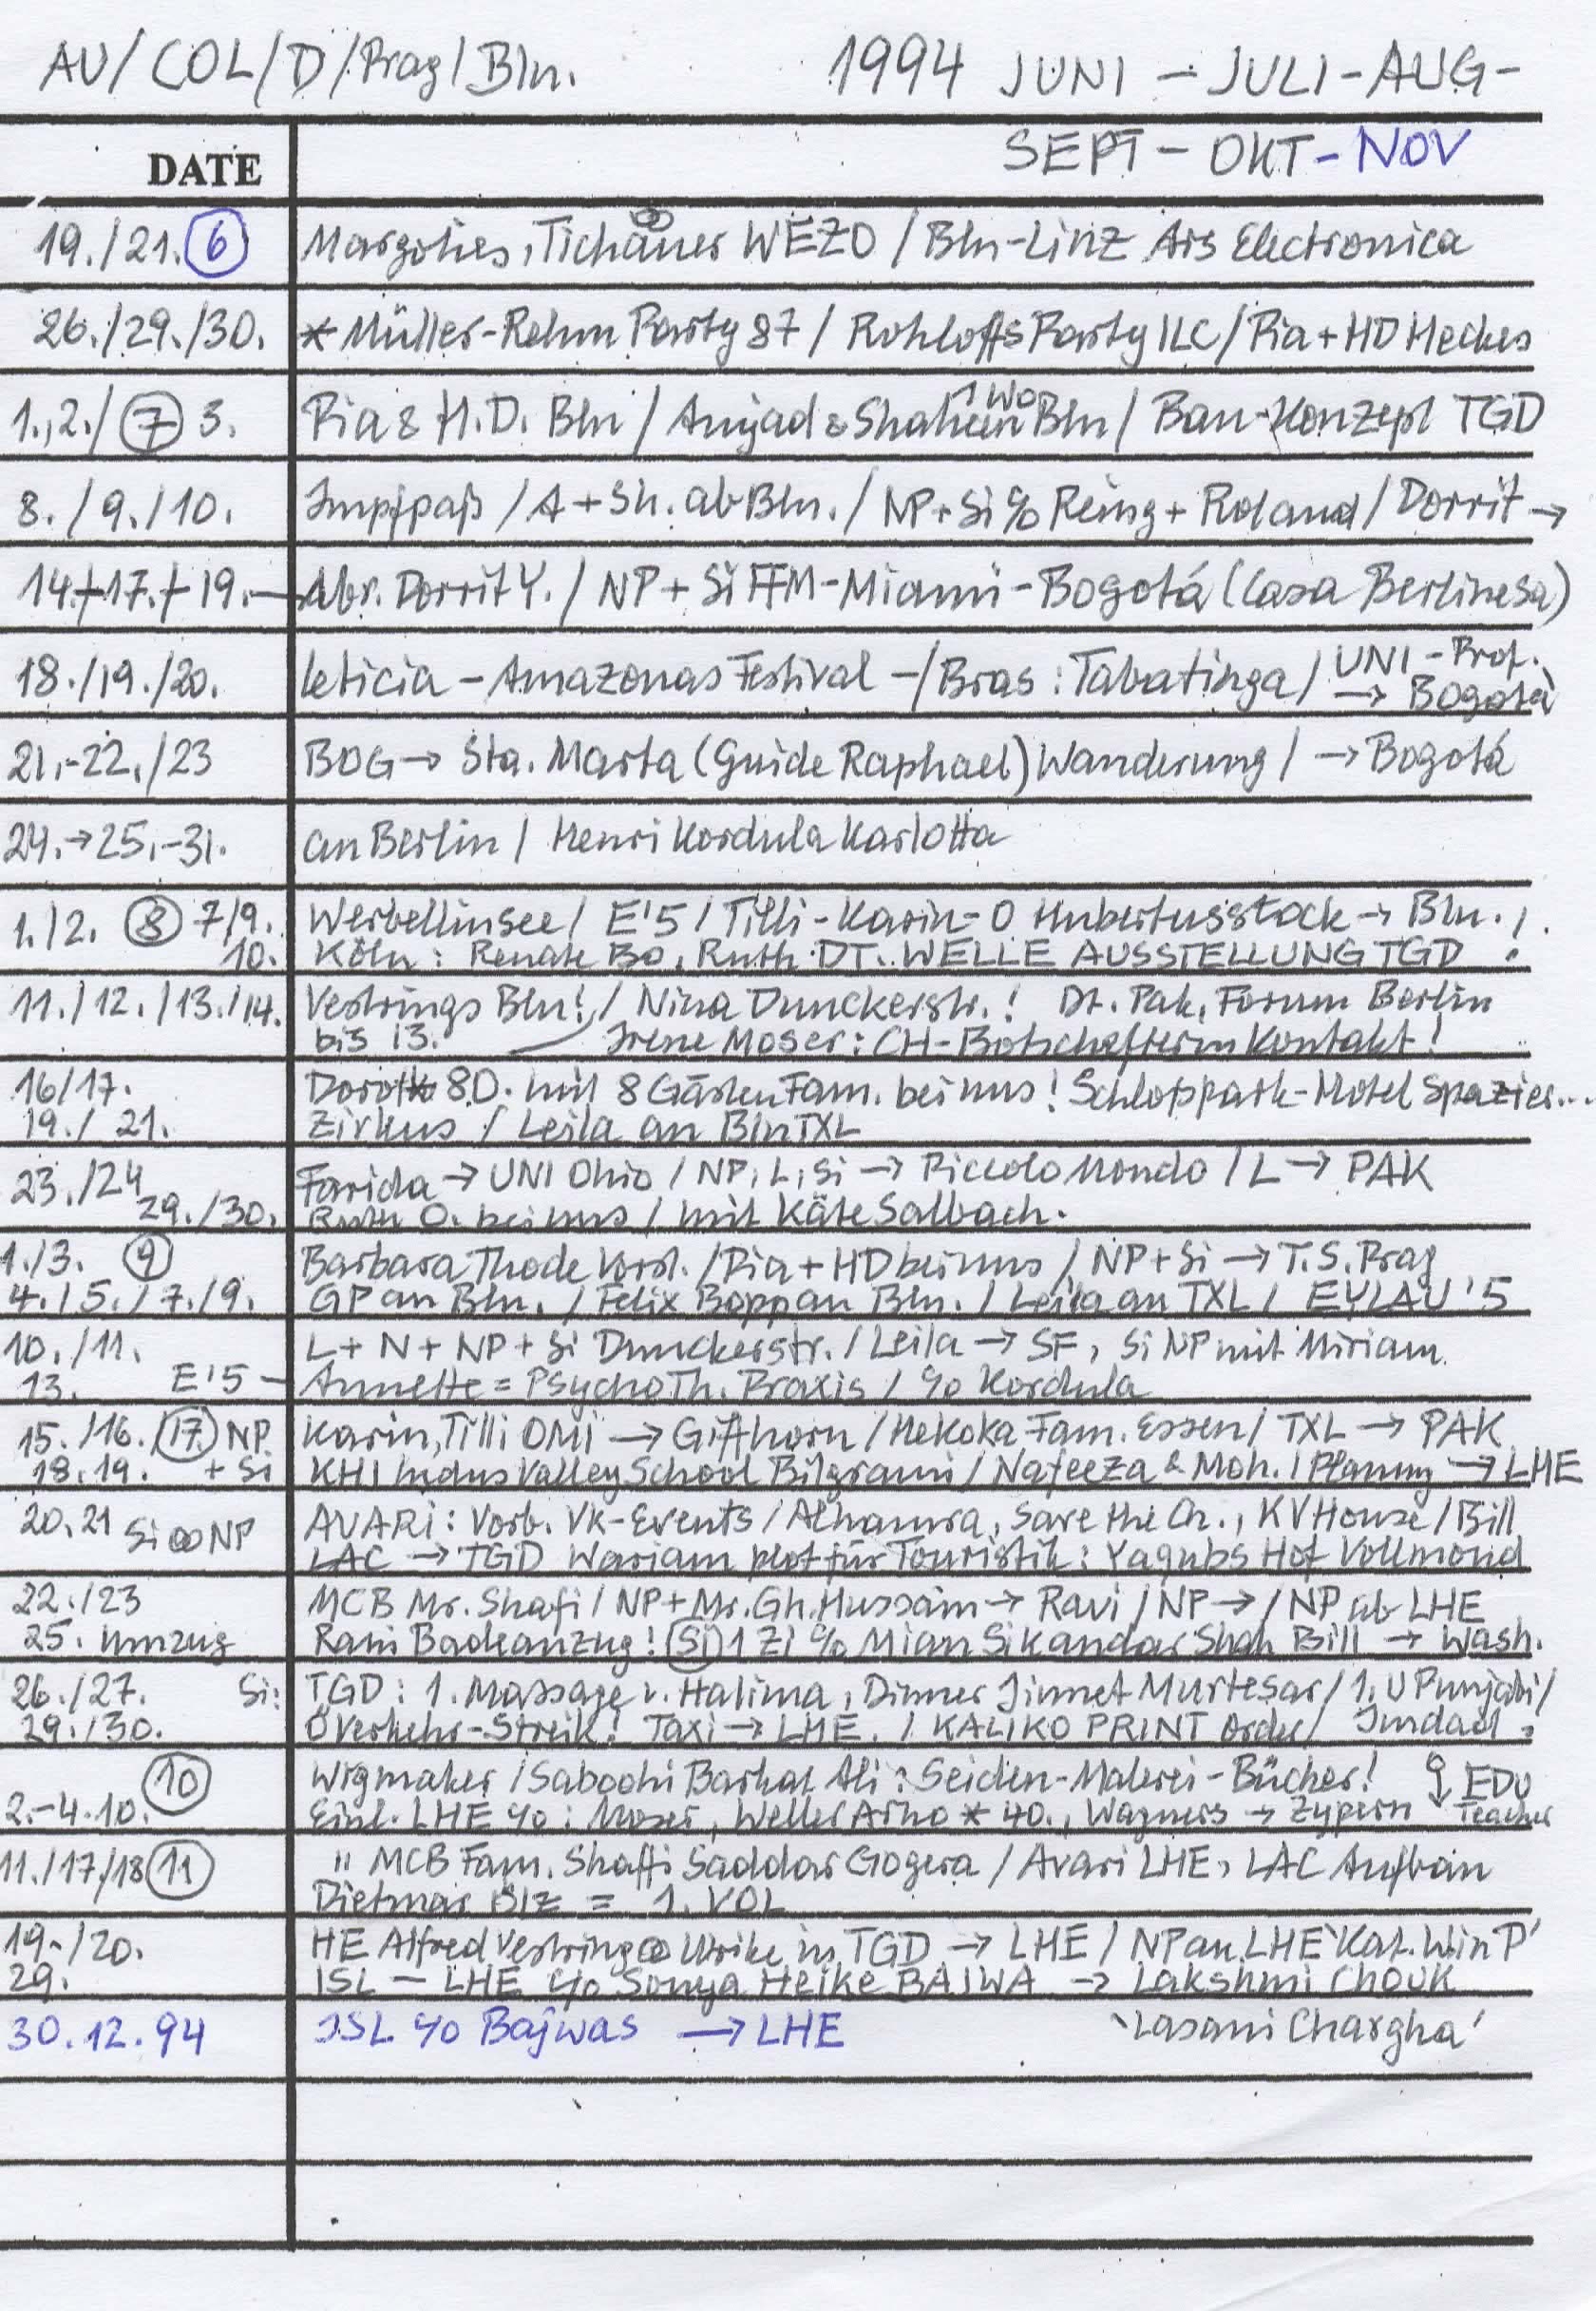 AU/COL/D/Prag/Bln. 1994 JUNI – JULI – AUG –
DATE SEPT – OKT – NOV
19./21. 6 Margolies, WEZO / Bln-Linz Ars Electronica
26./29./30. * Müller-Rehm Party 87 / Rohloffs Party ILC / Pia + HD Heckes
1 Wo
1.,2./ 7 3. Pia & H.D. Bln / Amjad & Shaheen Bln / Bau-Konzept TGD
8./9./10. Impfpaß / A + Sh. ab Bln. / NP + Si c/o + Roland / Dorrit →
14.+17.+19.– Abr. Dorrit Y. / NP + Si FFM – Miami – Bogotá (Casa Berlinesa)
18./19./20. Leticia – Amazonas Festival – / Bras: Tabatinga / UNI – Prof.
→ Bogotá
21.-22./23 BOG → Sta. Marta (Guide Raphael) Wanderung / → Bogotá
24.→25.-31. an Berlin / Henri Kordula Karlotta
1./2. 8 7/9. Werbellinsee / E'5 / Tilli-Karin-O Hubertusstock → Bln. / .
10. Köln: Renate Bo, Ruth DT. WELLE AUSSTELLUNG TGD !
11./12./13./14. Vestrings Bln! / Nina Dunckerstr.! Dt. Pak. Forum Berlin
bis 13. Irene Moser: CH-Botschafterin Kontakt!
16/17. 8D. mit 8 Gärten Fam. bei uns! Schloßpark-Hotel Spazier...
19./ 21. Zirkus / Leila an Bln TXL
23./24 Farida → UNI Ohio / NP, L, Si → Piccolo Mondo / L → PAK
29./30. Ruth O. bei uns / mit Käte Salbach.
1./3. 9 Barbara Thode Vorst. / Pia + HD bei uns / NP + Si → T.S. Prag
4./5./7./9. GP an Bln. / Felix Bopp an Bln. / Leila an TXL / EYLAU '5
10./11. L + N + NP + Si Dunckerstr. / Leila → SF, Si NP mit Miriam
13. E'5 – Annette = PsychoTh. Praxis / c/o Kordula
15./16./17. NP Karin, Tilli OMi → Gifhorn / Hekoka Fam. Essen / TXL → PAK
18.19. + Si KHI Indus Valley School Bilgrami / Nafeeza & Moh. / Planung → LHE
20.21 Si NP AVARI: Vorb. VK-Events / Alhamra, Save the Ch., KV House / Bill
LAC → TGD Wariam plot für Touristik: Yaqubs Hof Vollmond
22./23 MCB Mr. Shafi / NP + Mr. Gh. Hussain → Ravi / NP → / NP ab LHE
25. Umzug Rani Badeanzug! Si 1 Zi c/o Mian Sikandar Shah Bill → Wash.
26./27. Si: TGD: 1. Massage v. Halima, Dinner Jinnet Murtesar / 1. U Punjabi /
29./30. Ö Verkehr-Streik! Taxi → LHE. / KALIKO PRINT order / Imdad
10 Wigmaker / Saboohi Barkat Ali: Seiden-Malerei-Bücher! EDU
2.-4.10. Einl. LHE c/o: Moser, Weller Arno * 40., Wagners → Zypern Teacher
11./17/18 11 " MCB Fam. Shaffi Saddar Gogera / Avari LHE, LAC Aufbau
Dietmar = 1. VOL
19./20. HE Alfred Vestring Ulrike in TGD → LHE / NP an LHE 'Kat. Win P'
29. ISL – LHE c/o Sonya Heike BAJWA → Lakshmi Chouk
30.12.94 ISL c/o Bajwas → LHE 'Lasani Chargha'